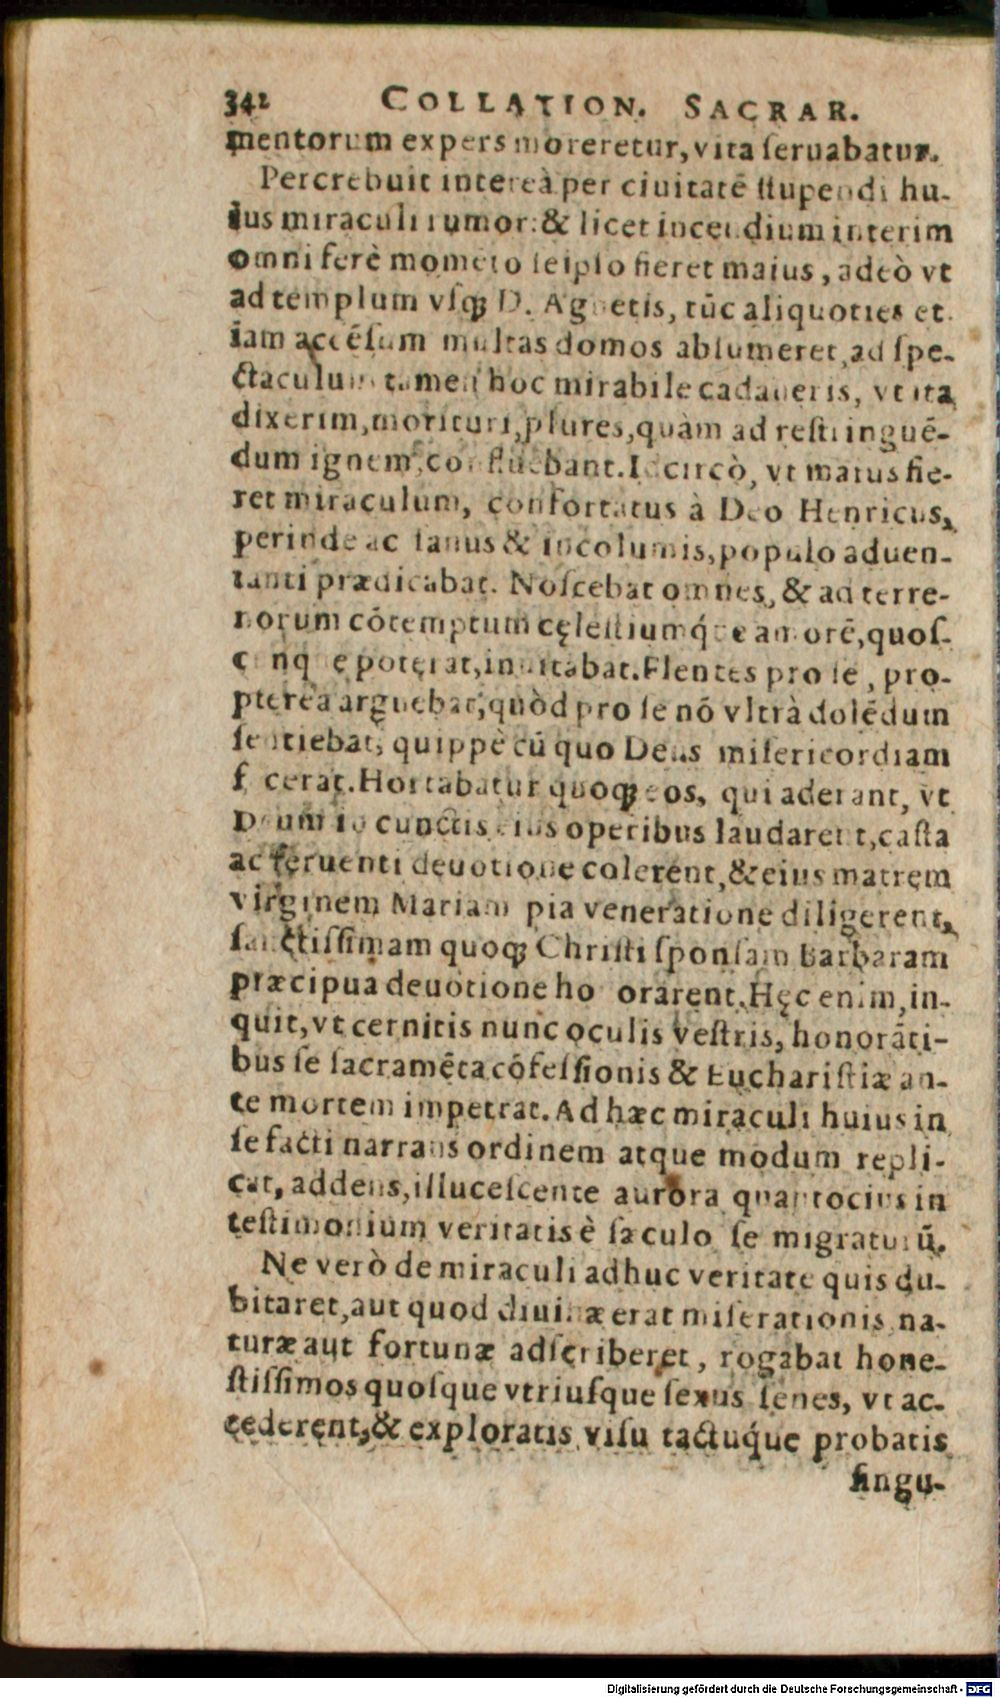 342 COLLATION. SACRAR.
mentorum expers moreretur, vita ſeruabatur.
Percrebuit intereà per ciuitatē ſtupendi hu-
ius miraculi rumor: & licet incendium interim
omni ferè momēto ſeipſo fieret maius, adeò vt
ad templum vſq; D. Agnetis, tūc aliquoties et-
iam accēſum multas domos abſumeret, ad ſpe-
ctaculum tamen hoc mirabile cadaueris, vt ita
dixerim, morituri, plures, quàm ad reſtinguē-
dum ignem, confluebant. Idcircò, vt maius fie-
ret miraculum, confortatus à Deo Henricus,
perinde ac ſanus & incolumis, populo aduen-
tanti prædicabat. Noſcebat omnes, & ad terre-
norum cōtemptum cęleſtiumq́ue amorē, quoſ-
cunque poterat, inuitabat. Flentes pro ſe, pro-
ptereà arguebat, quòd pro ſe nō vltrà dolēdum
ſentiebat, quippè cū quo Deus miſericordiam
fecerat. Hortabatur quoq; eos, qui aderant, vt
Deum in cunctis eius operibus laudarent, caſta
ac feruenti deuotione colerent, & eius matrem
virginem Mariam pia veneratione diligerent,
ſanctiſſimam quoq; Chriſti ſponſam Barbaram
præcipua deuotione honorarent. Hęc enim, in-
quit, vt cernitis nunc oculis veſtris, honorāti-
bus ſe ſacramēta cōfeſſionis & Euchariſtiæ an-
te mortem impetrat. Ad hæc miraculi huius in
ſe facti narrans ordinem atque modum repli-
cat, addens, illuceſcente aurora quantocius in
teſtimonium veritatis è ſæculo ſe migraturū.
Ne verò de miraculi adhuc veritate quis du-
bitaret, aut quod diuinæ erat miſerationis, na-
turæ aut fortunæ adſcriberet, rogabat hone-
ſtiſſimos quoſque vtriuſque ſexus ſenes, vt ac-
cederent, & exploratis viſu tactuq́ue probatis
ſingu-
Digitalisierung gefördert durch die Deutsche Forschungsgemeinschaft - DFG